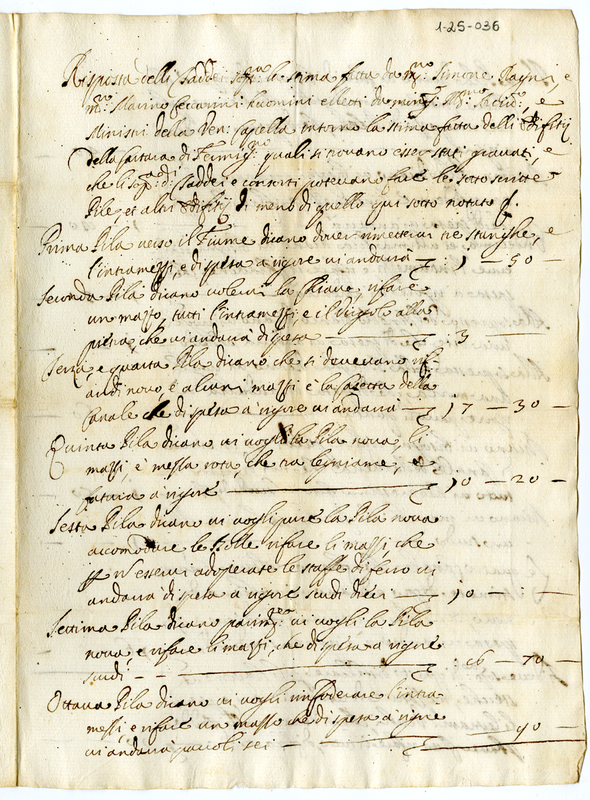 1-25-036
Risposta delli Taddei sopra la stima fatta da m.ro Simone
m.ro Marino Ceccarini huomini eletti da e
Ministri della Ven: Capella intorno la stima fatta delli Edifitij
della Cartara di Fermig.no quali si trovano esser stati gravati, e
che li sop.adi Taddei e consorti potevano fare le sotto scritte
Pile et altri Edifitij di meno di quello qui sotto notato
Prima Pila verso il Fiume dicano dover rimettervi tre stanghe, e
l'intramezzi, e di spesa a rigore vi andarà : 1 — 50 —
Seconda Pila dicano volervi la Chiave, rifare
un mazzo, tutti l'intramezzi, e il alla
pietra, che vi andarà di spesa : 3
Terza e quarta Pila dicano che si devevano
di novo e alcuni mazzi e la Casetta della
Canale che di spesa a rigore vi andarà 17 — 30 —
Quinta Pila dicano vi vogli la Pila nova, li
mazzi, e messa rota, che tra legniame, e
fattura a rigore 10 — 20 —
Sesta Pila dicano vi vogli pure la Pila nova
accomodare le rifare li mazzi, che
p esservi adoperate le staffe di ferro vi
andarà di spesa a rigore scudi dieci — 10 — —
Settima Pila dicano parim.te vi vogli la Pila
nova, e rifare li mazzi, che di spesa a rigore
scudi — : 16 — 70 —
Ottava Pila dicano vi vogli l'intra-
mezzi, e rifare un mazzo che di spesa a rigore — 90 —
vi andarà paoli sei —